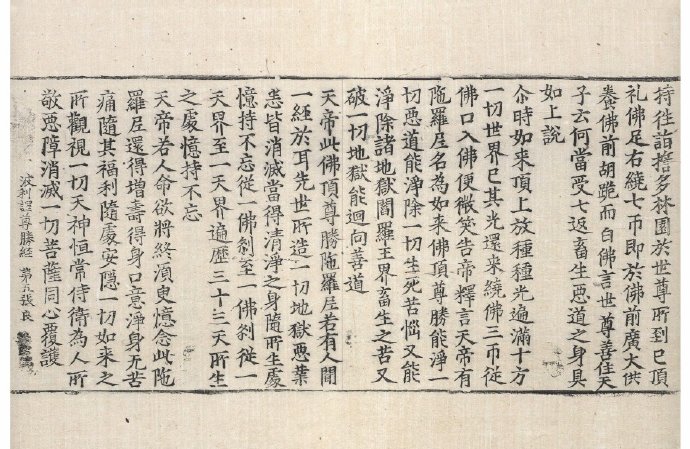 持往詣誓多林園於世尊所到已頂
礼佛足右繞七帀即於佛前廣大供
養佛前胡跪而白佛言世尊善住天
子云何當受七返畜生惡道之身具
如上說
尒時如来頂上放種種光遍滿十方
一切世界已其光還来繞佛三帀從
佛口入佛便微笑告帝釋言天帝有
陁羅尼名為如来佛頂尊勝能淨一
切惡道能淨除一切生死苦惱又能
淨除諸地獄閻羅王界畜生之苦又
破一切地獄能迴向善道
天帝此佛頂尊勝陁羅尼若有人聞
一經於耳先世所造一切地獄惡業
悉皆消滅當得清淨之身隨所生處
憶持不忘從一佛剎至一佛剎從一
天界至一天界遍歷三十三天所生
之處憶持不忘
天帝若人命欲將終須臾憶念此陁
羅尼還得增壽得身口意淨身无苦
痛隨其福利隨處安隱一切如来之
所觀視一切天神恒常侍衛為人所
敬惡障消滅一切菩薩同心覆護
波利譯尊勝經 第五張 良